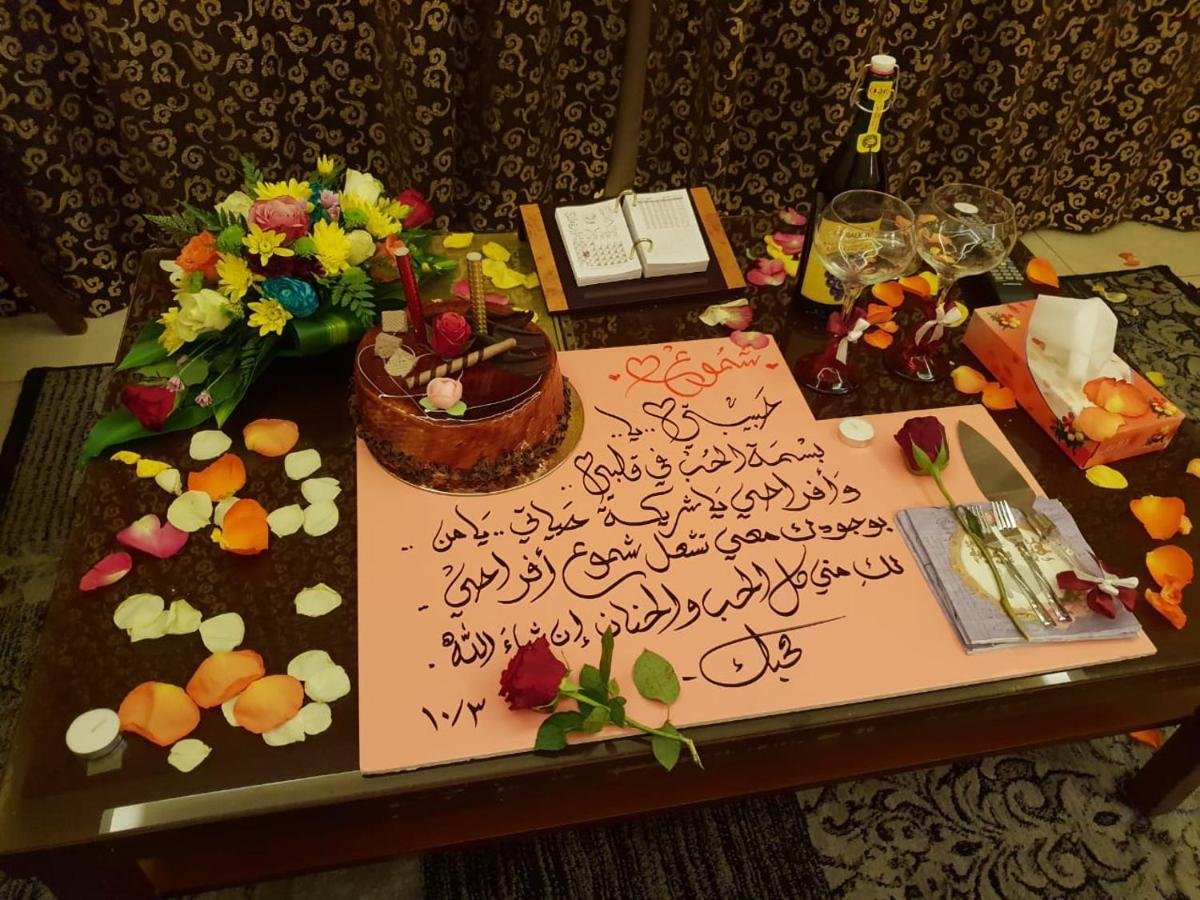 شموع
حبيبتي .. يا ..
بسمة الحب في قلبي ..
وأفراحي يا شريكة حياتي .. يا من ..
بوجودك معي تشعل شموع أفراحي .
لكِ مني كل الحب والحنان إن شاء الله .
محبك .
١٠/٣